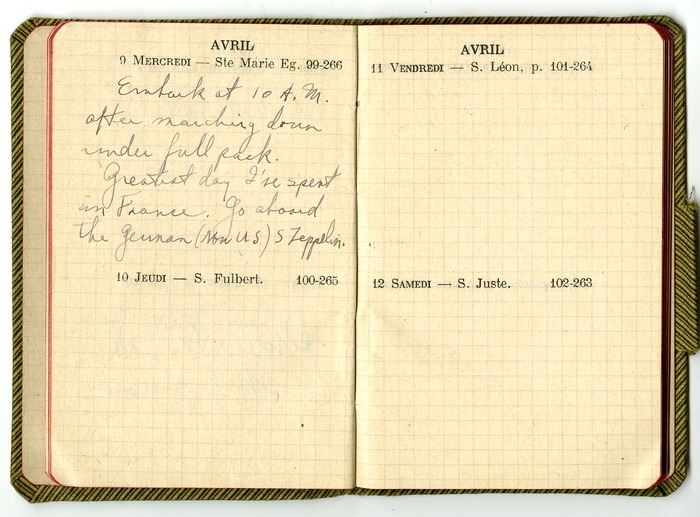 AVRIL
9 MERCREDI — Ste Marie Eg. 99-266
Embark at 10 A.M.
after marching down
under full pack.
Greatest day I've spent
in France. Go aboard
the German (Now U.S.) S Zeppelin.
10 JEUDI — S. Fulbert. 100-265
AVRIL
11 VENDREDI — S. Léon, p. 101-264
12 SAMEDI — S. Juste. 102-263